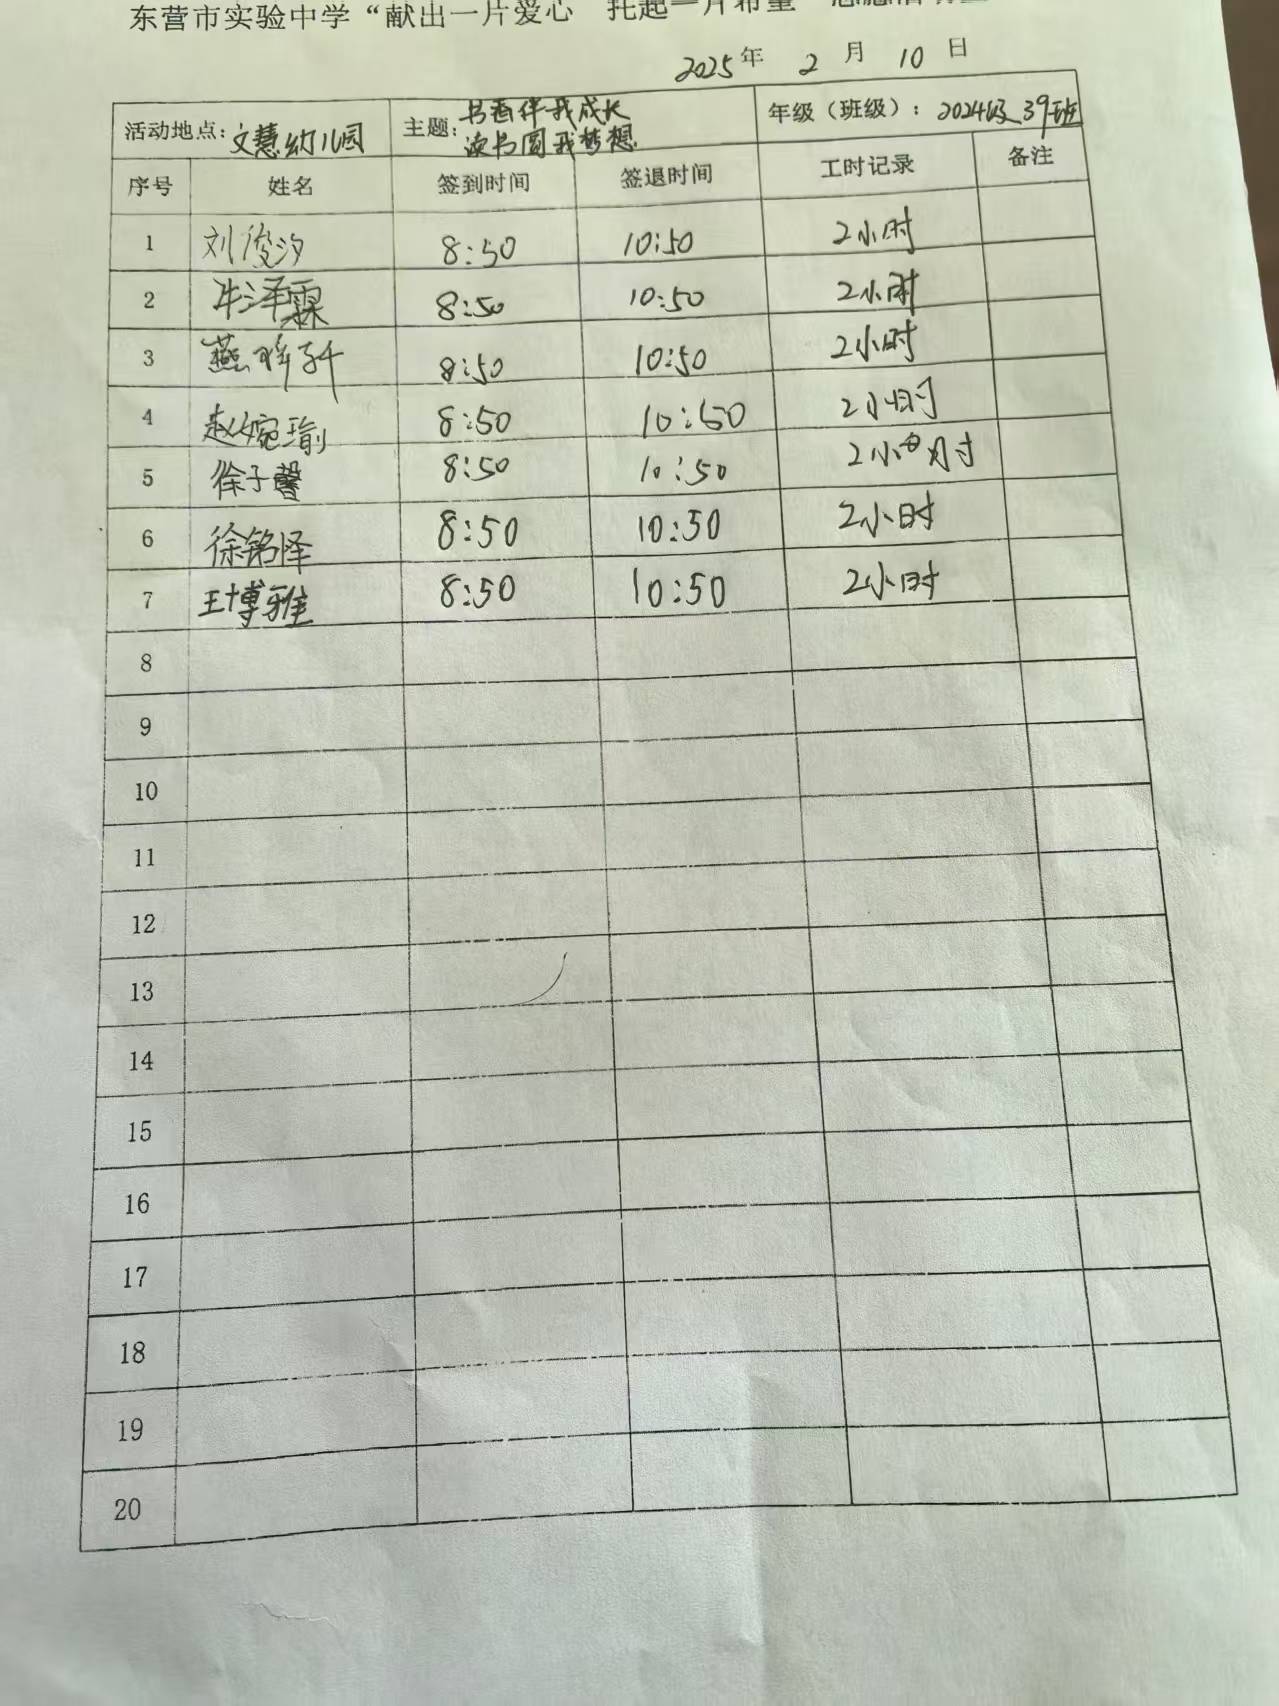 东营市实验中学“献出一片爱心 托起一片希望”志愿活动
2025年 2 月 10 日
活动地点：文慧幼儿园 主题：书香伴我成长 读书圆我梦想 年级（班级）：2024级39班
序号 姓名 签到时间 签退时间 工时记录 备注
1 刘俊汐 8:50 10:50 2小时
2 牛泽霖 8:50 10:50 2小时
3 燕 8:50 10:50 2小时
4 赵婉瑜 8:50 10:50 2小时
5 徐子馨 8:50 10:50 2小时
6 徐铭怿 8:50 10:50 2小时
7 王博雅 8:50 10:50 2小时
8
9
10
11
12
13
14
15
16
17
18
19
20